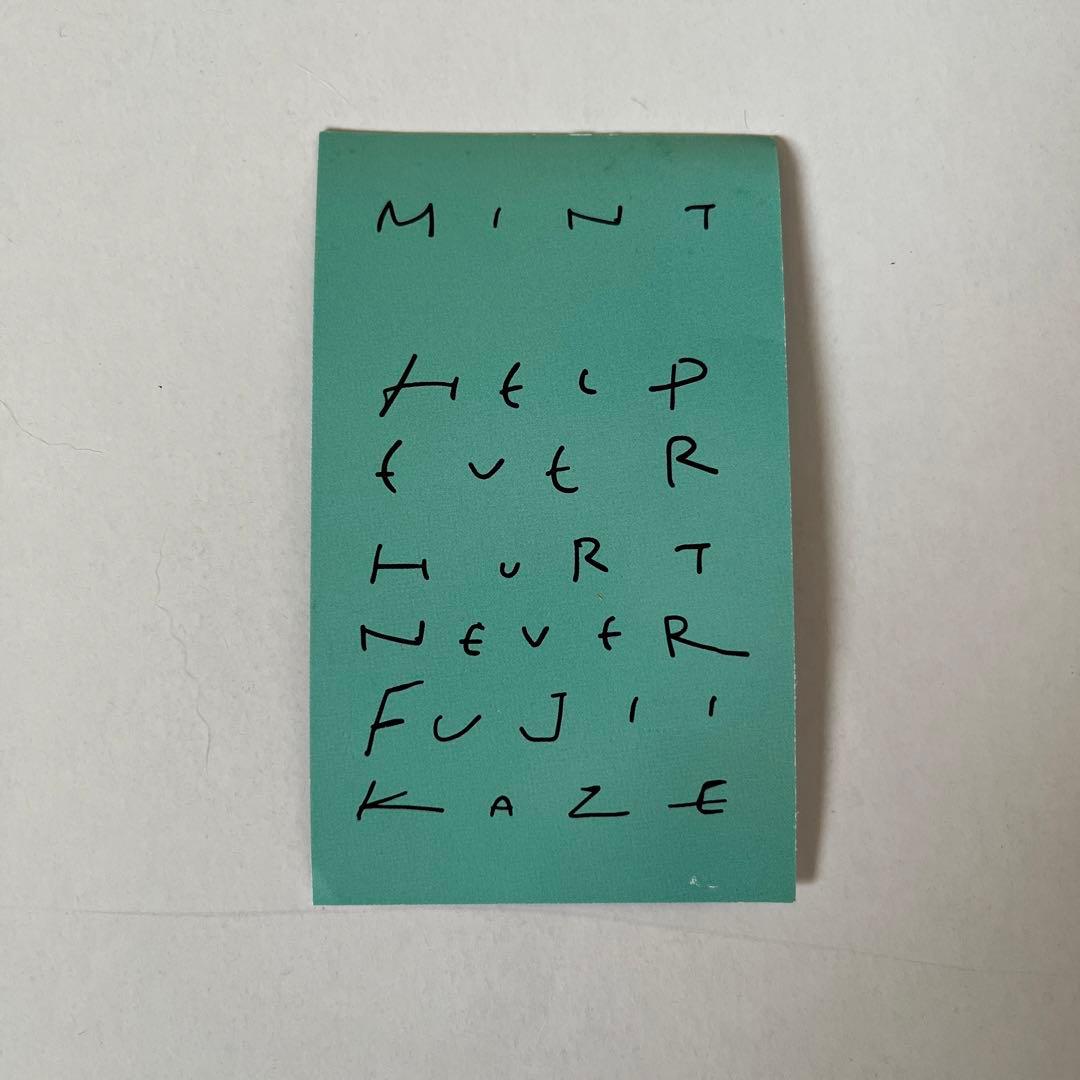 MINT
HELP
EVER
HURT
NEVER
FUJII
KAZE